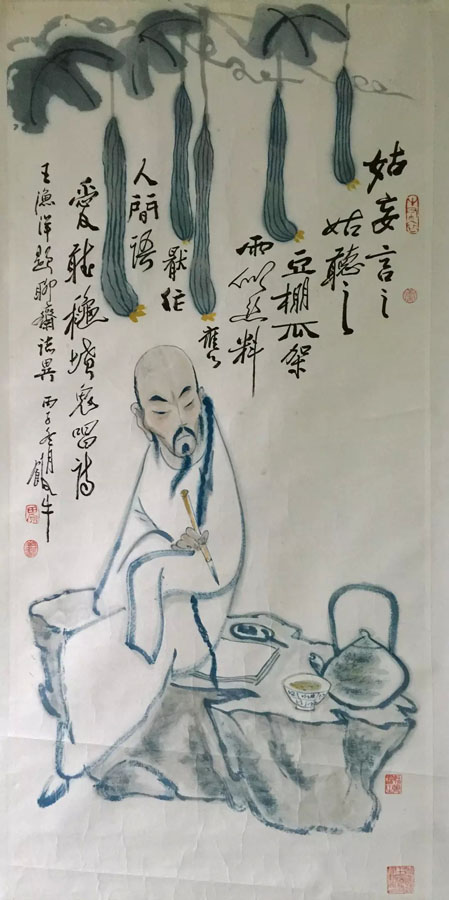 姑妄言之
姑聽之
豆棚瓜架
雨似丝料
應
厭作
人間語
愛聽穐墳鬼唱詩
王漁洋題聊齋誌異 丙子冬月 牛